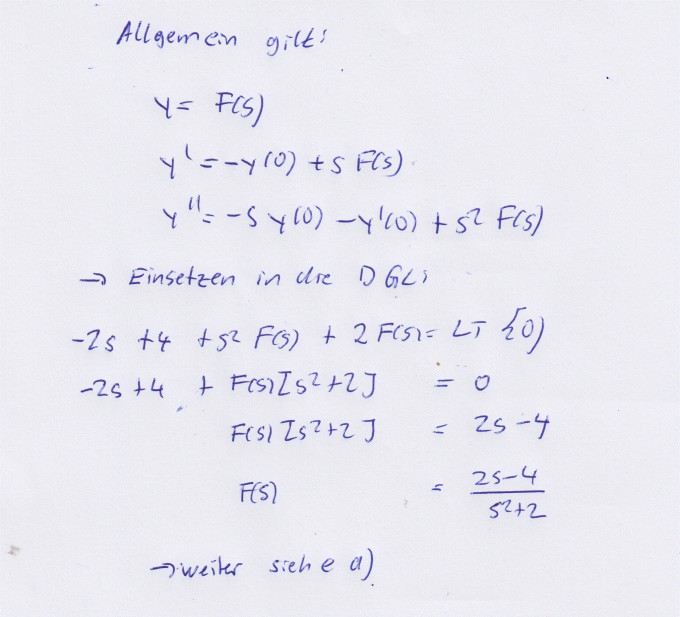 Allgemein gilt:
y = F(s)
y' = -y(0) + s F(s)
y'' = -s y(0) - y'(0) + s² F(s)
→ Einsetzen in die DGL:
-2s + 4 + s² F(s) + 2 F(s) = LT {0}
-2s + 4 + F(s)[s²+2] = 0
F(s)[s²+2] = 2s - 4
F(s) = \frac{2s-4}{s²+2}
→ weiter siehe a)